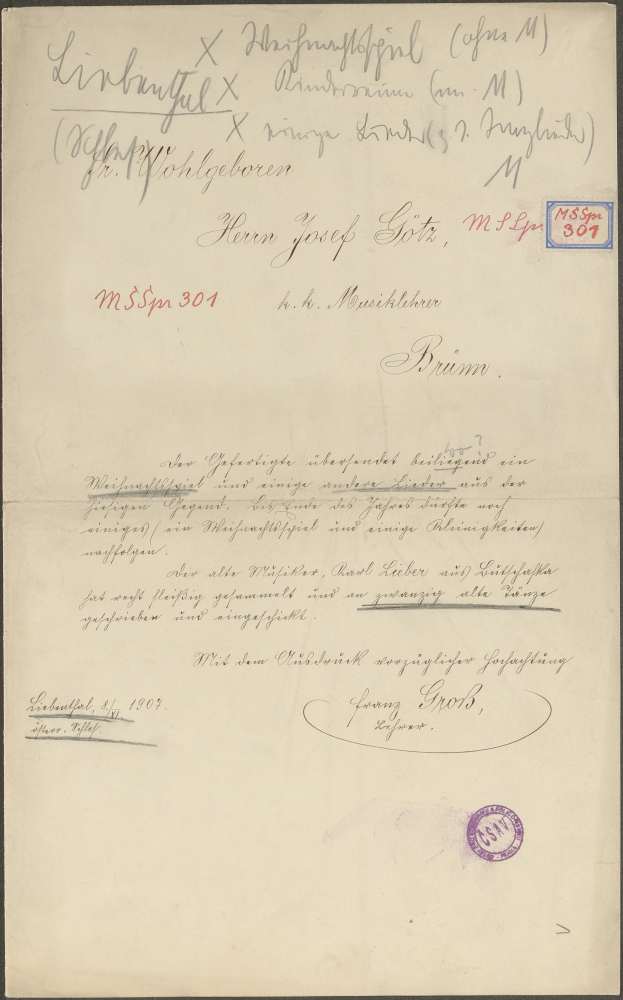 Liebenthal
(Schles)
X Weihnachtsspiel (ohne M)
X Kinderreime (un. M)
X einige Lieder (z. T.
M
Sr. Wohlgeboren
Herrn Josef Götz,
MSSpr
MSŠpr
301
MŠŠpr 301
k. k. Musiklehrer
Brünn.
wo?
Der Gefertigte übersendet beiliegend ein
Weihnachtsspiel und einige andere Lieder aus der
hiesigen Gegend. Bis Ende des Jahres dürfte noch
einiges (ein Weihnachtsspiel und einige Kleinigkeiten)
nachfolgen.
Der alte Musiker, Karl Lieber aus Butschafka
hat recht fleißig gesammelt und an zwanzig alte Tänze
geschrieben und eingeschickt.
Mit dem Ausdruck vorzüglicher Hochachtung
Franz Groß,
Lehrer.
Liebenthal, 8./VI. 1907.
österr. Schles.
ČSAV